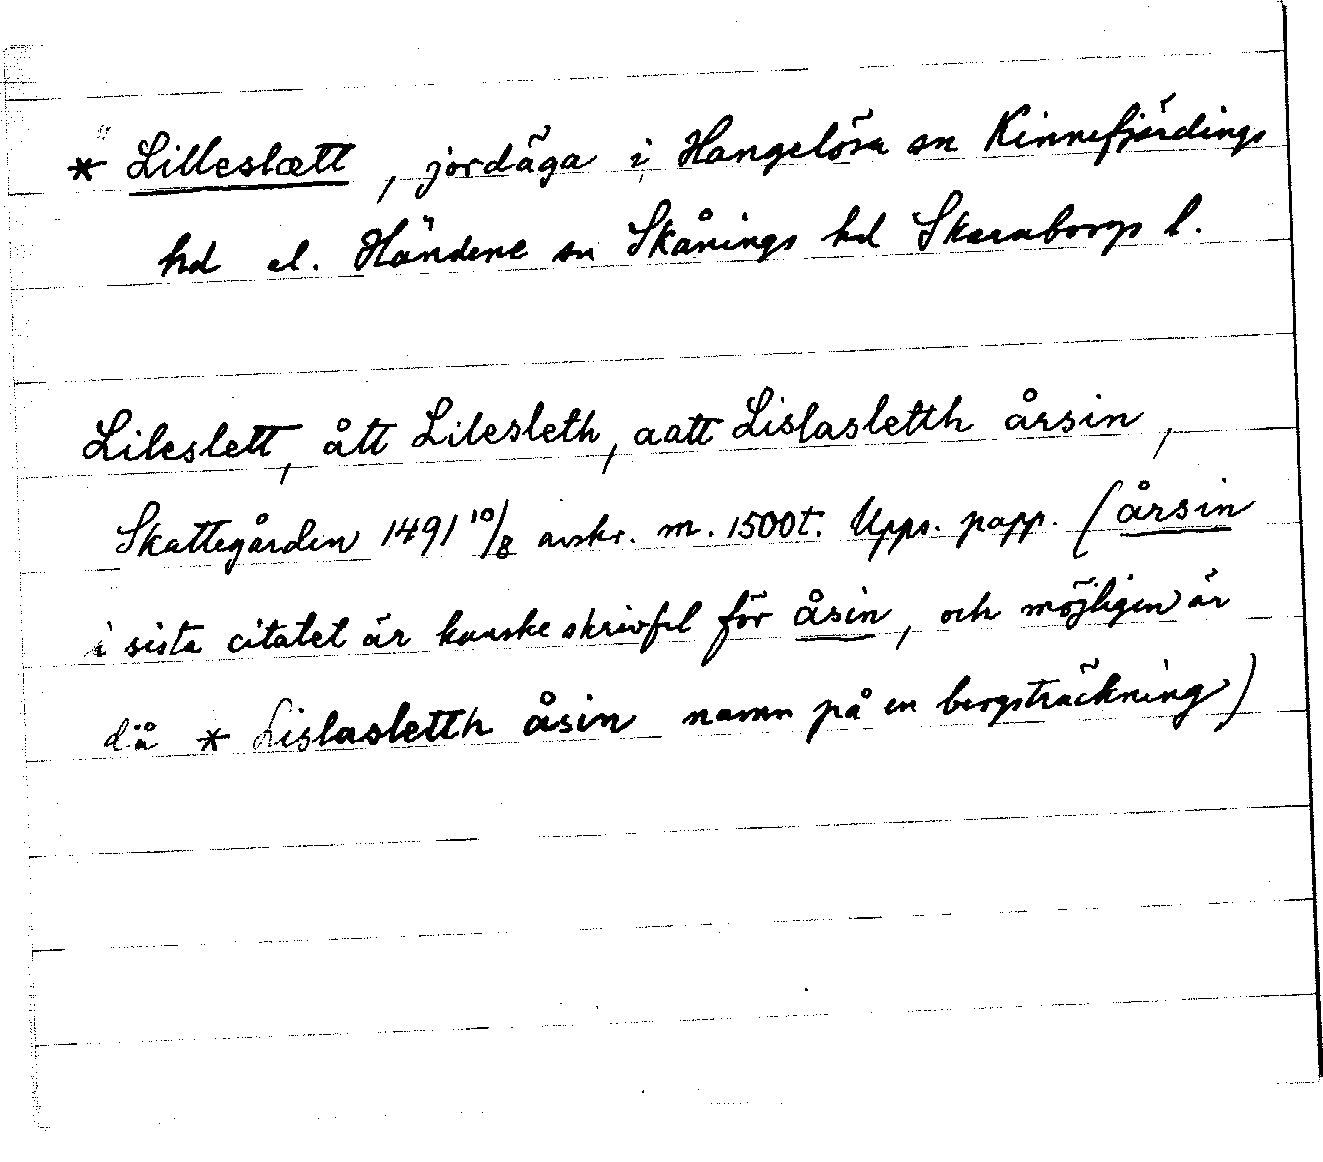 * Lilleslætt, jordäga i Hangelösa sn Kinnefjärdings
hd el. Händene sn Skånings hd Skaraborgs l.
Lileslett, ått Lilesleth, aatt Lislasletth årsin,
Skattegården 1491 10/8 avskr. m. 1500t. Upps. papp. (årsin
i sista citatet är kanske skrivfel för åsin, och möjligen är
då * Lislasletth åsin namn på en bergsträckning)